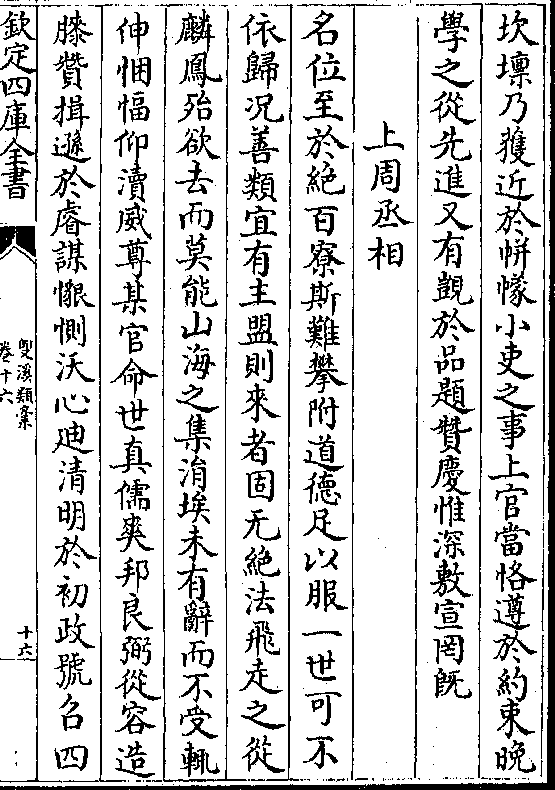 坎壈乃獲近於帡幪小吏之事上官當恪遵於約束晚
學之從先進又有觀於品題贊慶惟深敷宣罔既
上周丞相
名位至於絶百寮斯難攀附道德足以服一世可不
依歸况善類宜有主盟則來者固无絶法飛走之從
麟鳳殆欲去而莫能山海之集涓埃未有辭而不受輒
伸悃愊仰瀆威尊某官命世真儒奭邦良弼從容造
膝贊揖遜於睿謀懇惻沃心廸清明於初政號名四
欽定四庫全書
雙溪類藁
卷十六
十六